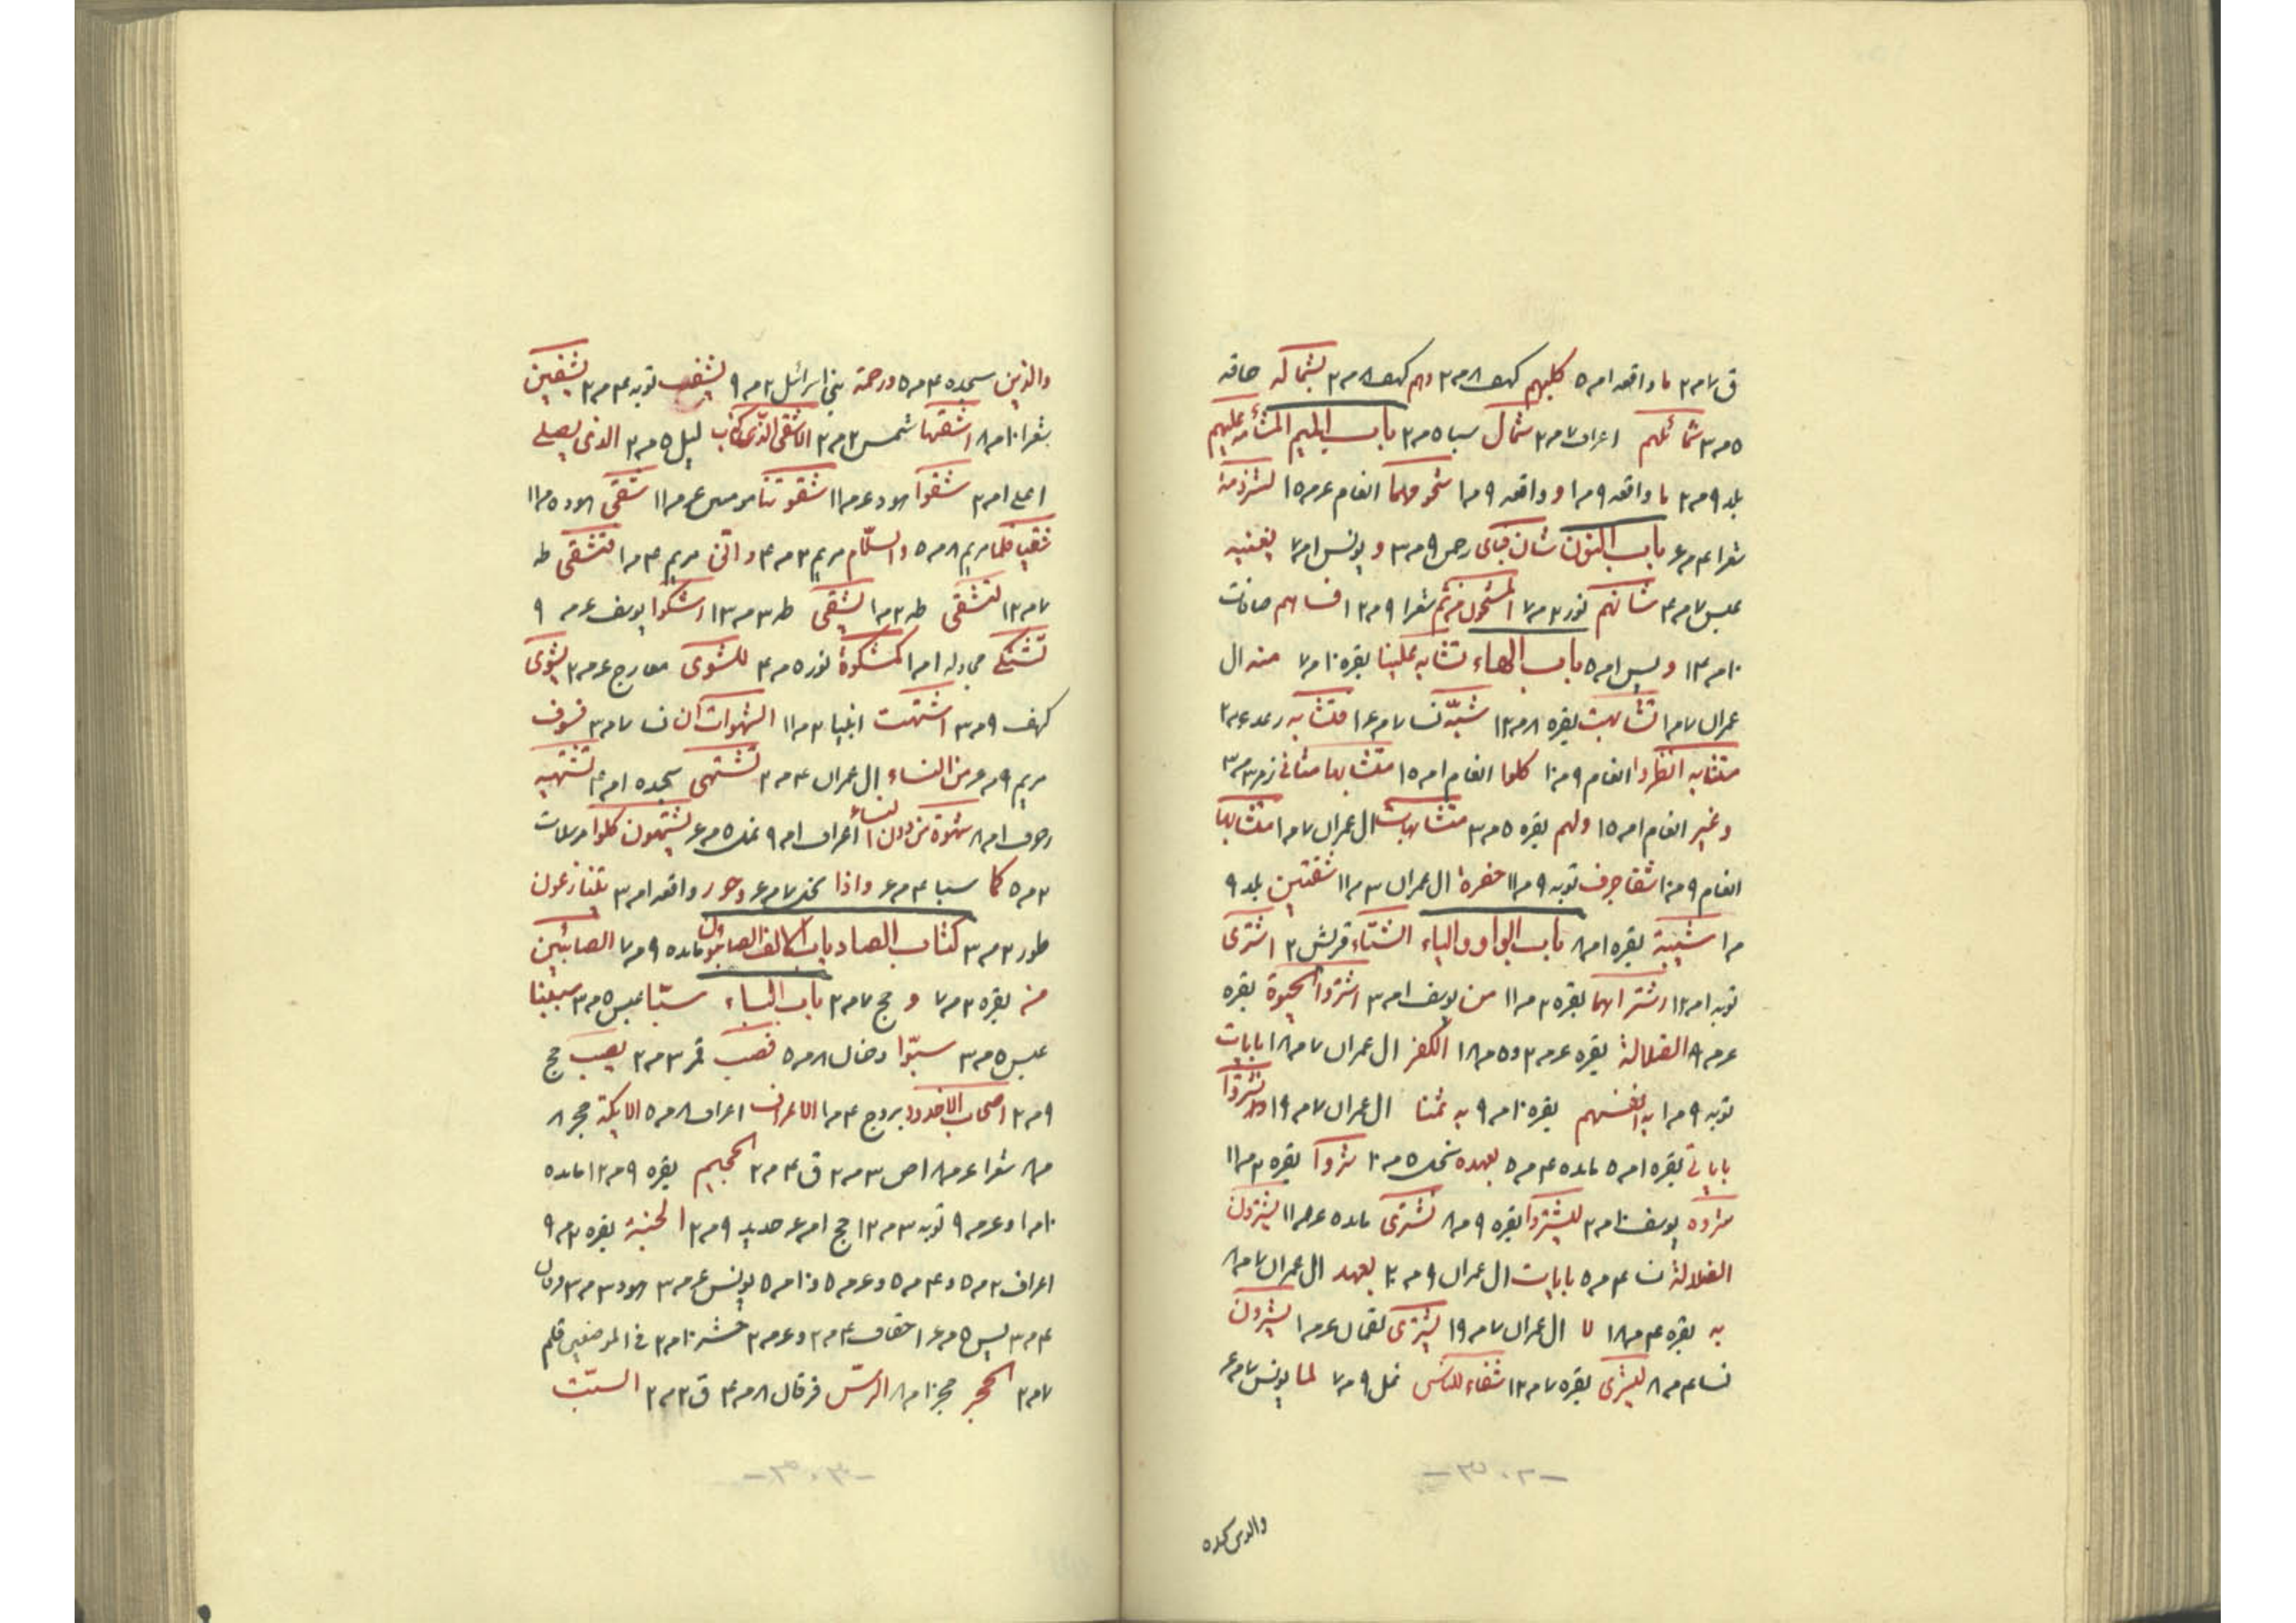 ق ٧م٢ ما واقعه ١م٥ كلبهم كهف ٨م٢ وهم كهف ٨م٢ بشماله حاقه
٥م٣ شمائلهم اعراف ٧م٢ شمال سبا ٥م٢ باب الميم المشأمه عليهم
بلد ٩م٢ ما واقعه ٩م١ و واقعه ٩م١ شحومهما انعام ٤م١٥ لشرذمة
شعرا ٤م٤ باب النون شان فباى رحمن ٩م٣ و يونس ١م٧ يغنيه
عبس ٧م٤ شانهم نور ٢م٧ المشحون ثم شعرا ٩م٢ ١ فساهم صافات
١٠م١٤ و يس ١م٥ باب الهاء تشابه علينا بقره ١٠م٧ منه ال
عمران ٧م١ تشابهت بقره ٨م١٢ شبّه نسا ٧م١٤ متشابه رعد ٤م٢
متشابه انظروا انعام ٩م١٠ كلوا انعام ١م١٥ متشابها مثانى زمر ٣م٣
وغير انعام ١م١٥ ولهم بقره ٥م٣ متشابهات ال عمران ٧م١ متشابها
انعام ٩م١٠ شفا جرف توبه ٩م١١ حفرة ال عمران ٣م١١ شفتين بلد ٩
م١ شيبة بقره ١م٨ باب الواو والياء الشتاء قريش ٢ اشترى
توبه ١م١٢ اشتراهما بقره ٢م١١ من يوسف ١م٣ اشتروا الحيوة بقره
٤م٩ الضلالة بقره ٤م٢ و٥م١٨ الكفر ال عمران ٧م١٨ بايات
توبه ٩م١ به انفسهم بقره ١٠م٩ به ثمنا ال عمران ٧م١٩ ولا تشتروا
باياتى بقره ١م٥ مائده ٤م٥ بعهد نحل ٥م٢٠ شروا بقره ٢م١١
شروه يوسف ١٠م٢ ليشتروا بقره ٩م٨ نشترى مائده ٤م١١ يشترون
الضلالة نسا ٤م٥ بايات ال عمران ٩م٢٠ بعهد ال عمران ٧م٨
به بقره ٤م١٨ لا ال عمران ٧م١٩ يشترى لقمان ٤م١ يشرون
نسا ٤م٨ يشرى بقره ٧م١٢ شفاء للناس نحل ٩م٧ لما يونس ٧م٤
والذين سجده
والذين سجده ٤م٥ ورحمة بنى اسرائيل ٢م٩ يشف توبه ٤م٢ يشفين
شعرا ١٠م٨ اشقيها شمس ٢م٢ الاشقى الذى كذب ليل ٥م٢ الذى يصلى
اعلى ١م٢ شقوا هود ٤م١١ شقوتنا مومنين ٤م١١ شقى هود ٥م١١
شقيا فلما مريم ٨م٥ والسلام مريم ٢م٤ وانى مريم ٤م١ فتشقى طه
٧م١٢ لتشقى طه ٢م١ يشقى طه ٣م١٣ اشكوا يوسف ٤م٩
تشتكى مجادله ١م١ كمشكوة نور ٥م٤ للشوى معارج ٤م٢ يشوى
كهف ٩م٣ اشتهت انبيا ٢م١١ الشهوات ان نسا ٧م٣ فسوف
مريم ٩م٤ من النساء ال عمران ٤م٢ تشتهى سجده ١م٤ تشتهيه
زخرف ١م٨ شهوة من دون النساء اعراف ١م٩ نمل ٥م٤ يشتهون كلوا مرسلات
٢م٥ كما سبا ٤م٤ واذا نحل ٧م٤ وحور واقعه ١م٣ يتنازعون
طور ٢م٣ كتاب الصاد باب الالف الصابئون مائده ٩م٧ الصابئين
من بقره ٢م٧ و حج ٧م٢ باب الباء صبّا عبس ٥م٣ صببنا
عبس ٥م٣ صبّوا دخان ٨م٥ فصب فجر ٣م٢ يصب حج
٩م٢ اصحاب الاخدود بروج ٤م١ الاعراف اعراف ٨م٥ الايكة حجر ٨
م٨ شعرا ٤م١٨ ص ٣م٢ ق ٤م٢ الجحيم بقره ٩م١٢ مائده
١٠م١ و٤م٩ توبه ٣م١٢ حج ١م٤ حديد ٩م٢ الجنة بقره ٢م٩
اعراف ٢م٥ و٤م٥ و٤م٥ و١٠م٥ يونس ٤م٣ هود ٣م٣ فرقان
٤م٣ يس ٥م٤ احقاف ٤م٢ و٤م٢ حشر ١٠م٢ فى الموضعين قلم
٧م٢ الحجر حجر ١٠م٨ الرس فرقان ٨م٤ ق ٢م٢ السبت